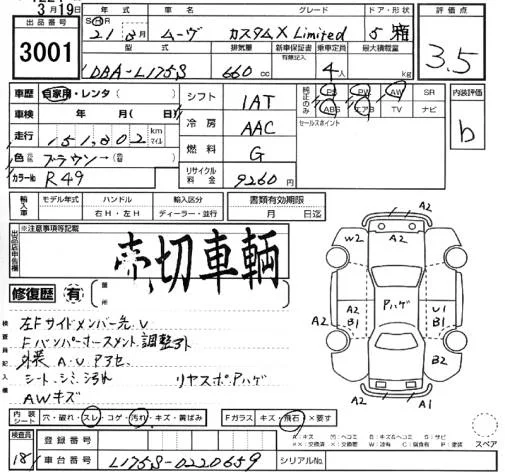 3月19日
出品番号 年式 グレード ドア・形状 評価点
3001
S H R 21年8月 ムーヴ カスタムX Limited 5 箱
3.5
型式 排気量 新車保証書 有無記入 乗車定員 最大積載量
DBA-L175S 660cc 4人 kg
車歴 自家用・レンタ( )
車検 年 月( 日)
走行 151,802 km マイル
色 ブラウン→
カラーNo R49
シフト 1AT
冷房 AAC
燃料 G
リサイクル料金 9260円
純正のみ PS PW AW SR
ABS エアB TV ナビ
セールスポイント
内装評価
b
輸入車 モデル年式 ハンドル 輸入区分 書類有効期限
右H・左H ディーラー・並行 月 日迄
※注意事項等記載
出品店申告欄
売切車輌
修復歴 有 箇所
検査員記入欄
左Fサイドメンバー先.U
Fバンパーホースメント調整外
外装 A・U
シート.シミ.汚れ リヤスポPハゲ
AWキズ
A2
W2 A2
Pハゲ
A2 A2 B1 U1 B1
B2
A2 A1
内装シート 穴・破れ・スレ・コゲ・汚れ・キズ・黄ばみ Fガラス キズ・飛石・×要す
スペア
検査員 登録番号
18 車台番号 L175S-0220659 シリアルNo.